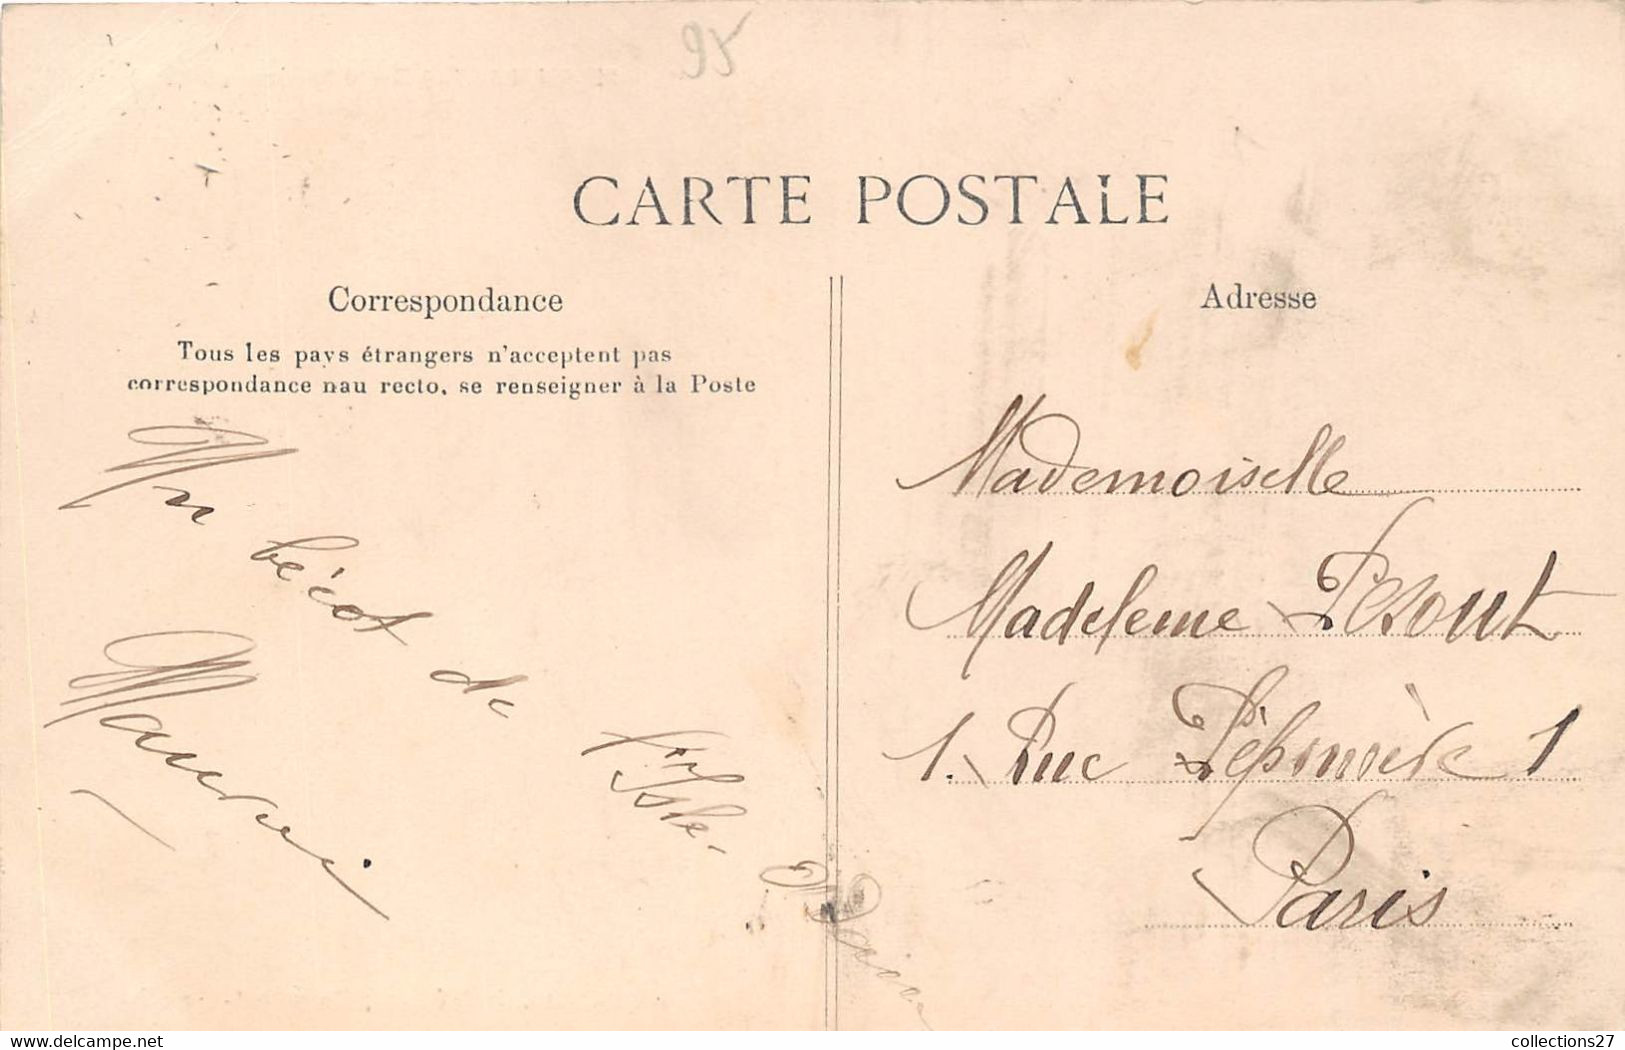 92
CARTE POSTALE
Correspondance
Tous les pays étrangers n'acceptent pas
correspondance nau recto, se renseigner à la Poste
Un bécot de
l'Isle-Adam
Adresse
Mademoiselle
Madeleine
1. Rue Pépinière 1
Paris
collections27